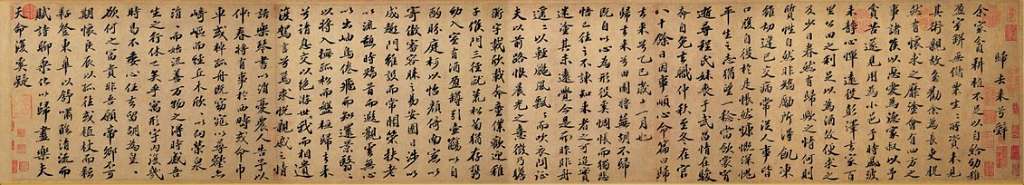 歸去來兮辭
余家貧耕植不足以自給幼稚
盈室缾無儲粟生生所資未見
其術親故多勸余為長吏脫
然有懷求之靡途會有四方之
事諸侯以惠愛為德家叔以余
貧苦遂見用為小邑于時風波
未靜心憚遠役彭澤去家百
里公田之利足以為酒故便求之
及少日眷然有歸歟之情何則
質性自然非矯勵所得飢凍
雖切違己交病嘗從人事皆
口腹自役於是悵然慷慨深愧
平生之志猶望一稔當斂裳宵
逝尋程氏妹喪于武昌情在駿
奔自免去職仲秋至冬在官
八十餘日因事順心命篇曰歸
去來兮乙巳歲十一月也
歸去來兮田園將蕪胡不歸
既自以心為形役奚惆悵而獨悲
悟已往之不諫知來者之可追寔
迷塗其未遠覺今是而昨非舟
遙遙以輕颺風飄飄而吹衣問征
夫以前路恨晨光之熹微乃瞻
衡宇載欣載奔僮僕歡迎稚
子候門三徑就荒松菊猶存攜
幼入室有酒盈罇引壺觴以自
酌眄庭柯以怡顏倚南窗以
寄傲審容膝之易安園日涉以
成趣門雖設而常關策扶老
以流憩時矯首而遐觀雲無心
以出岫鳥倦飛而知還景翳翳
以將入撫孤松而盤桓歸去來
兮請息交以絕游世與我而相遺
復駕言兮焉求悅親戚之情
話樂琴書以消憂農人告予以
春及將有事乎西疇或命巾
車或棹孤舟既窈窕以尋壑亦
崎嶇而經丘木欣欣以向榮泉
涓涓而始流善萬物之得時感吾
生之行休已矣乎寓形宇內復幾
時曷不委心任去留胡為皇皇
欲何之富貴非吾願帝鄉不可
期懷良辰以孤往或植杖而耘
耔登東皐以舒嘯臨清流而
賦詩聊乘化以歸盡樂夫
天命復奚疑